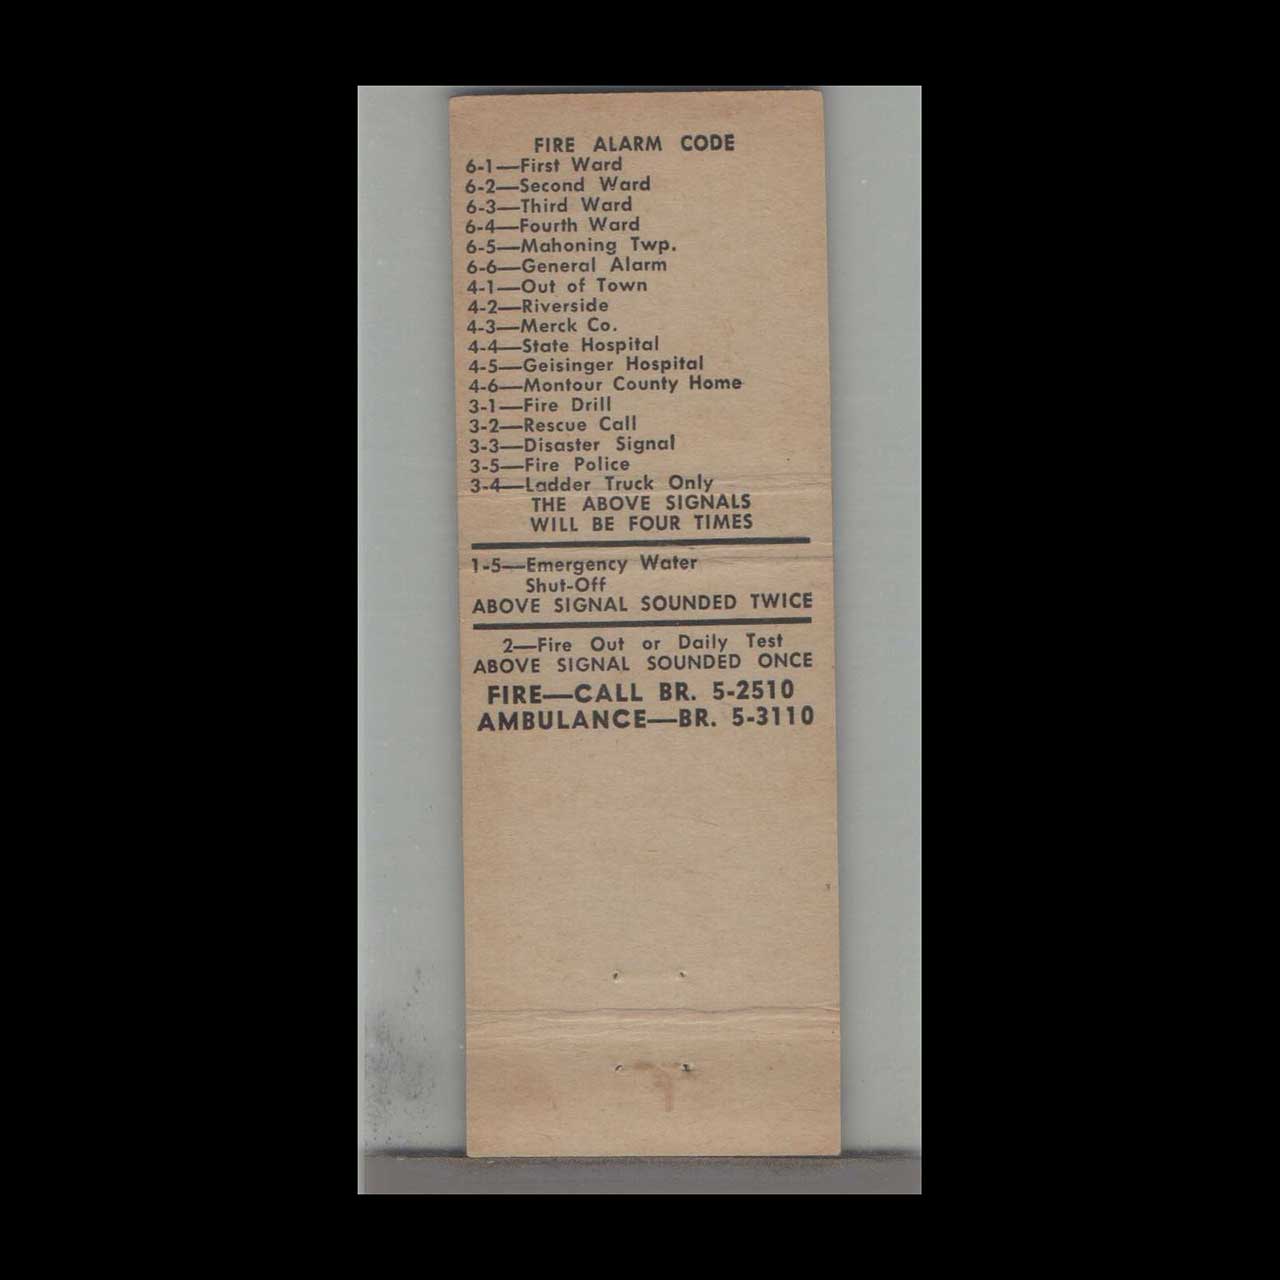 FIRE ALARM CODE
6-1—First Ward
6-2—Second Ward
6-3—Third Ward
6-4—Fourth Ward
6-5—Mahoning Twp.
6-6—General Alarm
4-1—Out of Town
4-2—Riverside
4-3—Merck Co.
4-4—State Hospital
4-5—Geisinger Hospital
4-6—Montour County Home
3-1—Fire Drill
3-2—Rescue Call
3-3—Disaster Signal
3-5—Fire Police
3-4—Ladder Truck Only
THE ABOVE SIGNALS
WILL BE FOUR TIMES
1-5—Emergency Water
Shut-Off
ABOVE SIGNAL SOUNDED TWICE
2—Fire Out or Daily Test
ABOVE SIGNAL SOUNDED ONCE
FIRE—CALL BR. 5-2510
AMBULANCE—BR. 5-3110